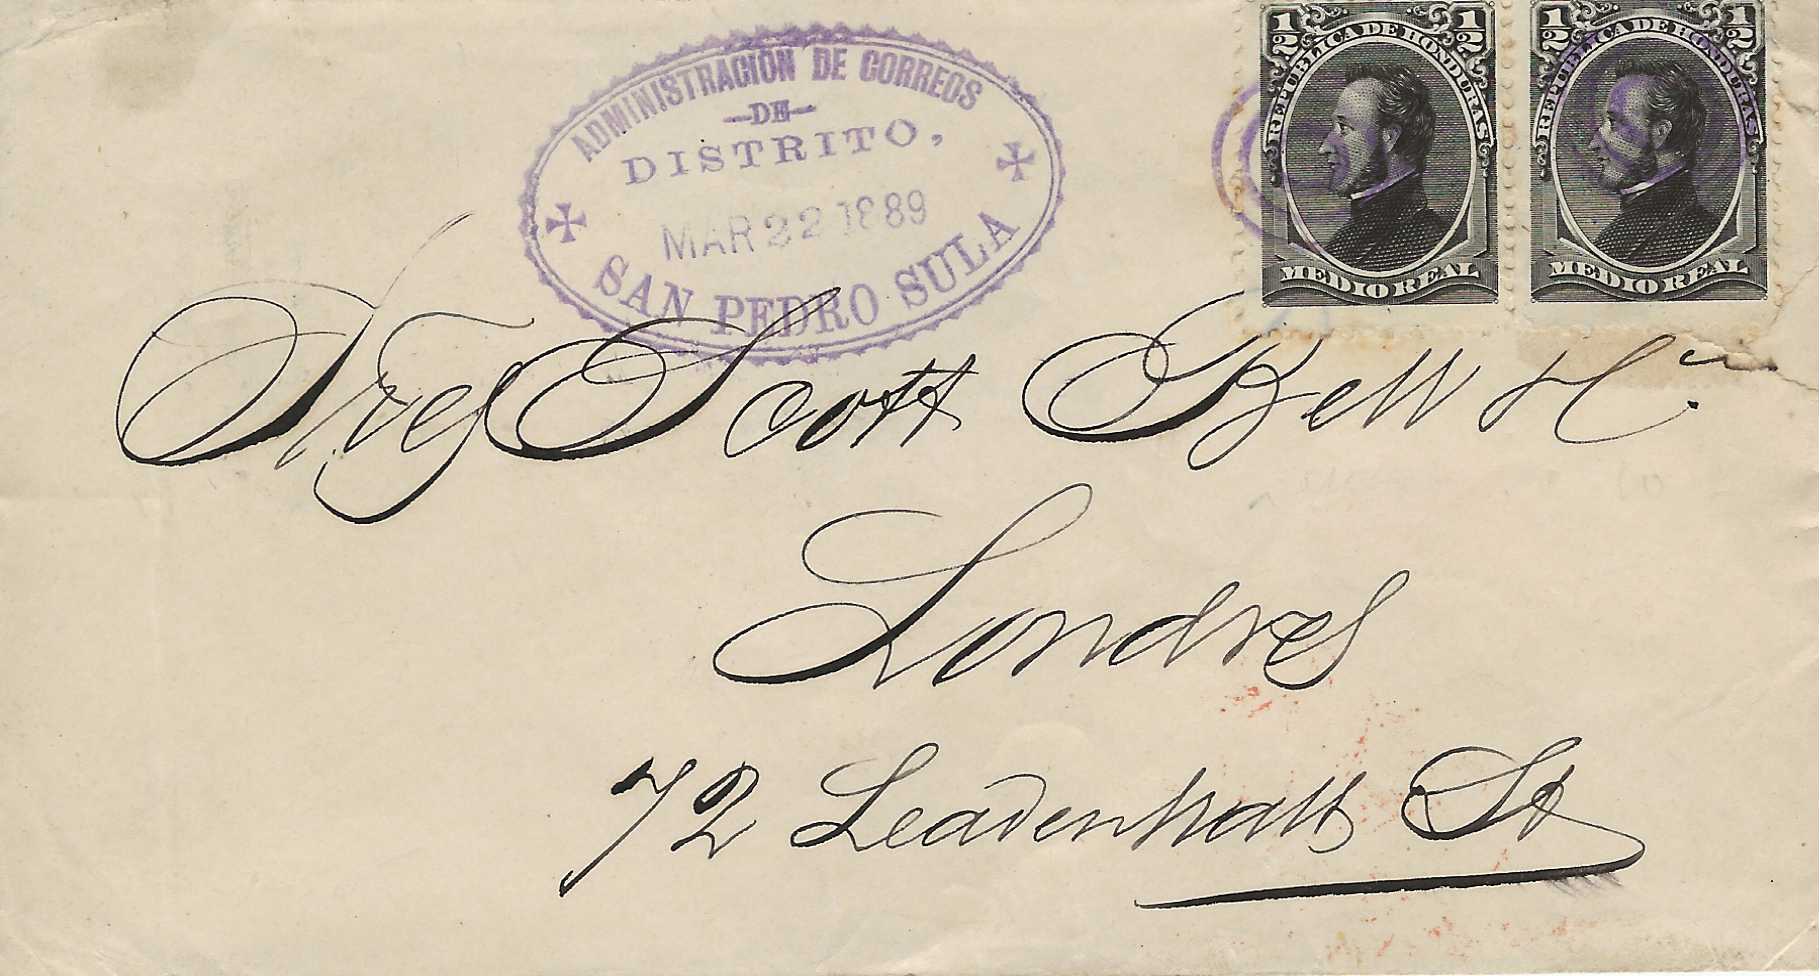 ADMINISTRACION DE CORREOS
DE
DISTRITO,
MAR 22 1889
SAN PEDRO SULA
1/2 1/2
REPUBLICA DE HONDURAS
MEDIO REAL
1/2 1/2
REPUBLICA DE HONDURAS
MEDIO REAL
Sres Scott Bell y Ca.
Londres
72 Leadenhall St